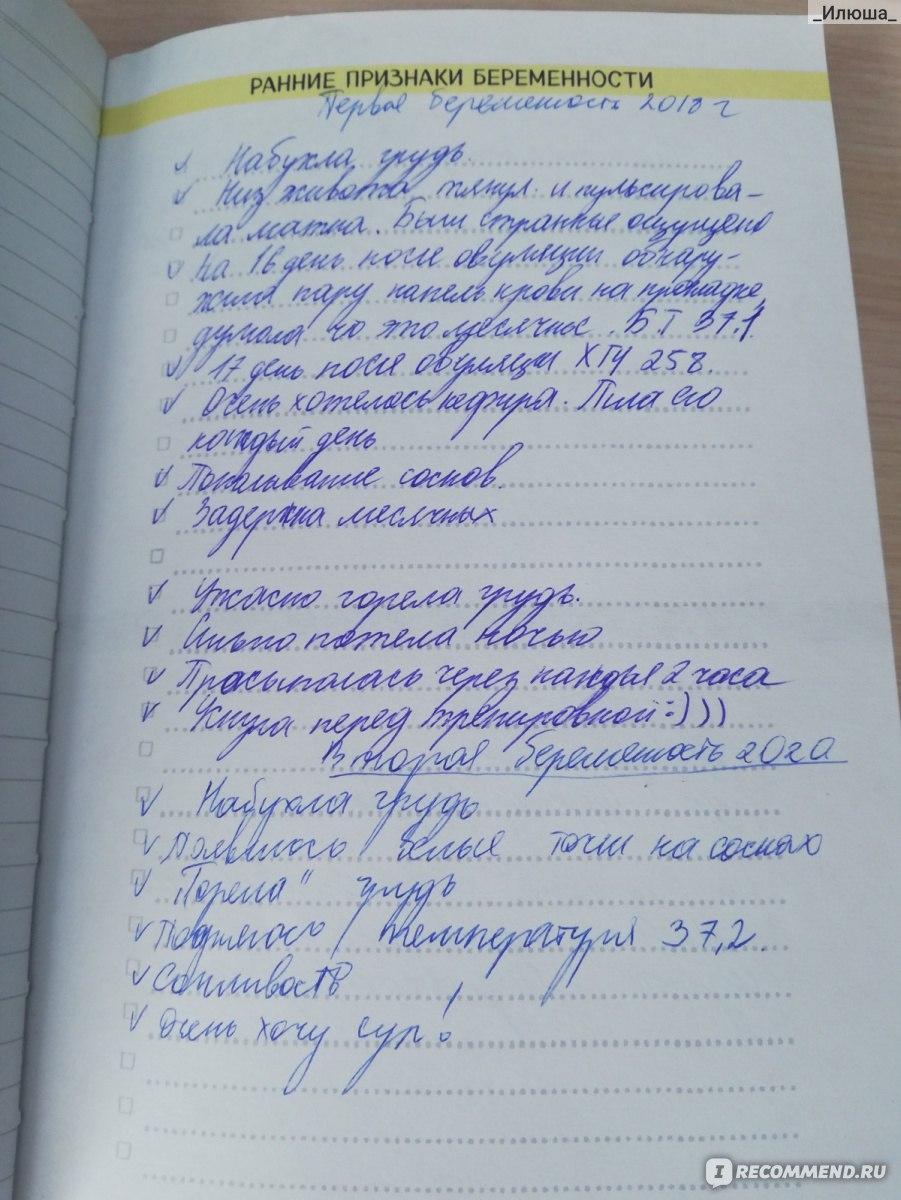 _Илюша_
РАННИЕ ПРИЗНАКИ БЕРЕМЕННОСТИ
Первая беременность 2018 г
Набухла грудь.
Низ живота тянул. и пульсирова-
ла матка. Были странные ощущения
на 16 день после овуляции обнару-
жила пару капель крови на прокладке,
думала что это месячные. БТ 37,1.
17 день после овуляции ХГЧ 258.
Очень хотелось кефира. Пила его
каждый день
Покалывание сосков.
Задержка месячных
Ужасно горела грудь.
Сильно потела ночью
Просыпалась через каждые 2 часа
Уснула перед тренировкой :)))
Вторая беременность 2020
Набухла грудь
Появилось белые точки на сосках
"Горела" грудь
Поднялась температура 37,2.
Сонливость
Очень хочу суп!
IRECOMMEND.RU